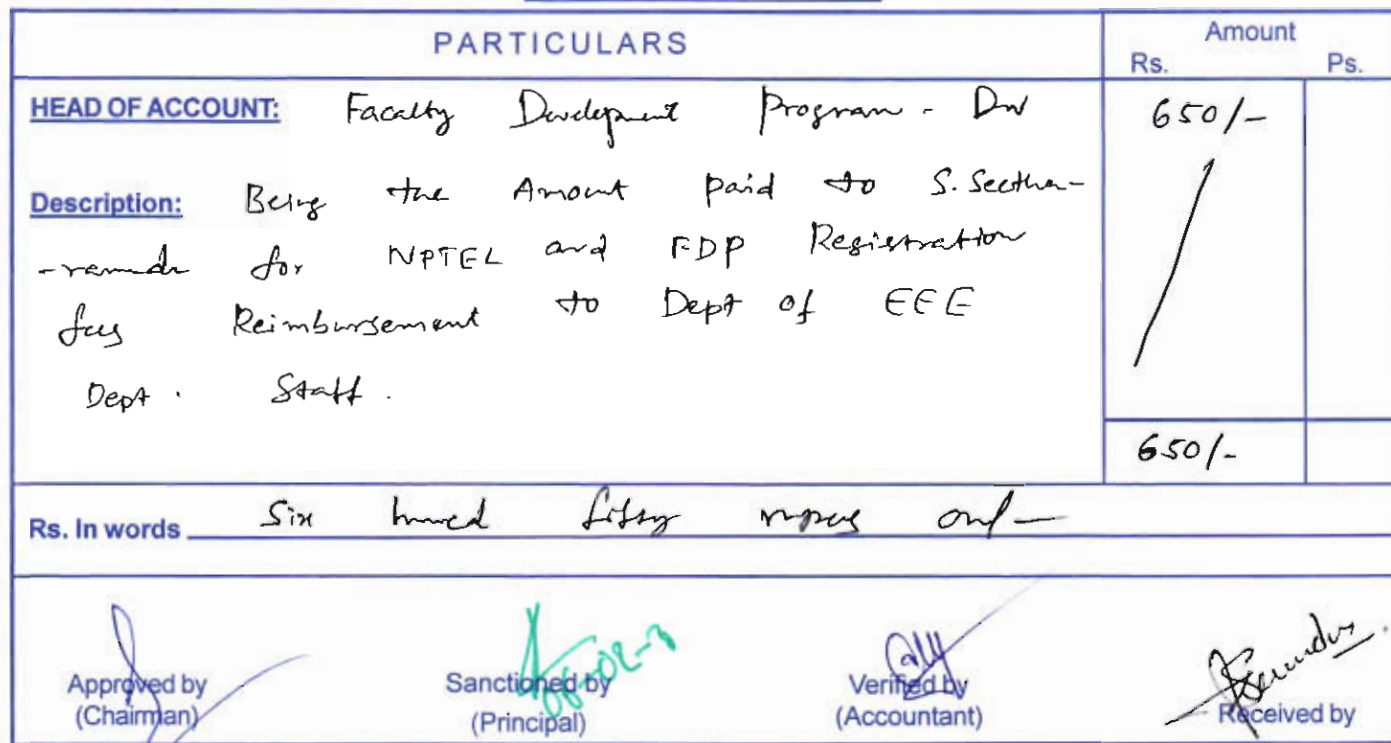 PARTICULARS
Amount
Rs. Ps.
HEAD OF ACCOUNT: Faculty Development Program - 650/-
Description: Being the Amount paid to S. Seetha-
for NPTEL and FDP Registration
fees Reimbursement to Dept of EEE
Dept. Staff.
650/-
Rs. In words Six hundred fifty rupees only
Approved by Sanctioned by Verified by Received by
(Chairman) (Principal) (Accountant)